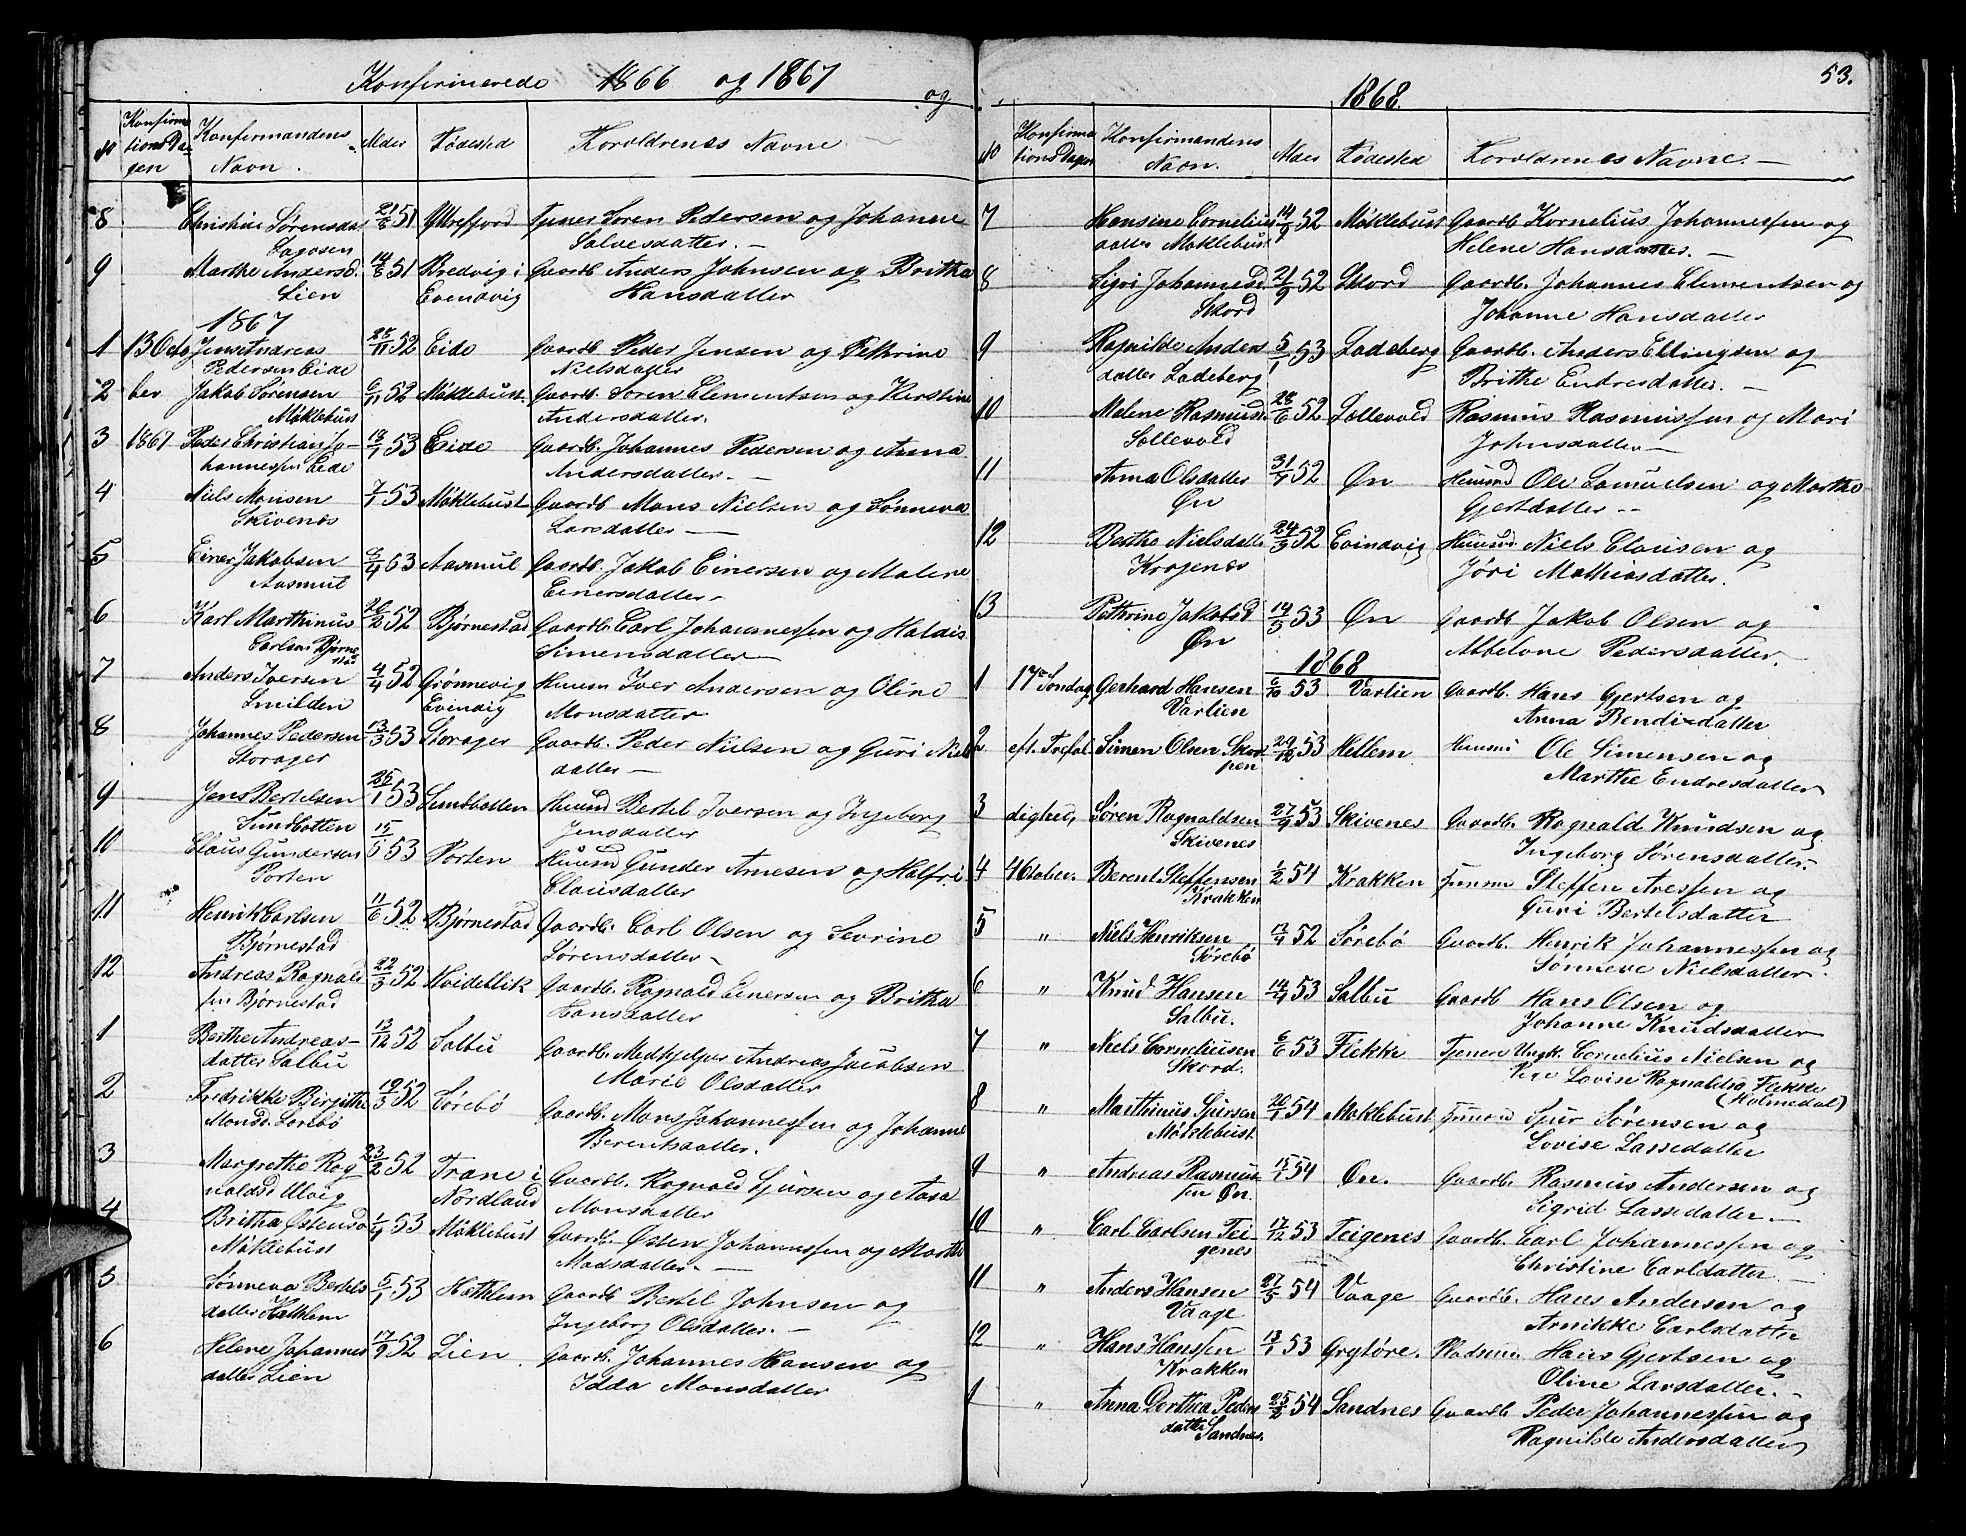 Konfirmerede 1866 og 1867 og
No Konfirma-tions Dagen Konfirmandens Navn. Alder Fødested Forældrenes Navne
8 Christine Sørensda. 21/8 51 Yttrefjord Tjener Søren Pedersen og Johanne
Salvesdatter. —
9 Marthe Andersd. 14/6 51 Bredvig i Gaardb. Anders Johnsen og Britha
Lien Evendvig Hansdatter
1867
1 13 Octo Jens Andreas 28/11 52 Eide Gaardb. Peder Jensen og Pethrine
Pedersen Eide Nielsdatter
2 ber Jakob Sørensen 6/11 52 Møklebust. Gaardb. Søren Clementsen og Kerstine
Møklebust Andersdatter.
3 1867 Peder Christian Jo- 18/1 53 Eide Gaardb. Johannes Pedersen og Anna
hannessen Eide Andersdatter. —
4 Niels Monsen 7/1 53 Møklebust Gaardb. Mons Nielsen og Sønneva
Skivenes Larsdatter —
5 Einer Jakobsen 8/4 53 Aasmul Gaardb. Jakob Einersen og Malene
Aasmul Einersdatter —
6 Karl Marthinus 26/2 52 Bjørnestad Gaardb. Carl Johannessen og Haldis
Carlsen Bjørne- Simensdatter —
stad
7 Anders Iversen 4/4 52 Grønnevig Huusm Iver Andersen og Oline
Smilden Evendvig Monsdatter
8 Johannes Pedersen 13/3 53 Storager Gaardb. Peder Nielsen og Guri Niels
Storager datter —
9 Jens Bertelsen 25/1 53 Sundbotten Huusmd Bertel Iversen og Ingeborg
Sundbotten Jensdatter
10 Claus Gundersen 15/5 53 Porten Huusmd Gunder Arnesen og Halfri
Porten Clausdatter
11 Henrik Carlsen 11/6 52 Bjørnestad Gaardb. Carl Olsen og Sevrine
Bjørnestad Sørensdatter —
12 Andreas Ragnald 22/3 52 Hvideblik Gaardb. Ragnald Einersen og Britha
sen Bjørnestad Hansdatter
1 Berthe Andreas- 13/12 52 Salbu Gaardb. Medhjelper Andreas Jacobsen
datter Salbu Marie Olsdatter
2 Fredrikke Birgitte 19/3 52 Sørebø Gaardb. Mons Johannessen og Johanne
Monsd. Sørebø Berentsdatter.
3 Margrethe Rag 23/2 52 Trane i Gaardb. Ragnald Sjursen og Aasa
naldsd. Nordland Monsdatter
4 Britha Østensd 1/9 53 Møklebust Gaardb. Østen Johannessen og Marthe
Møklebust Madsdatter. —
5 Sønneva Bertels 5/1 53 Hathlem Gaardb. Bertel Johnsen og
datter Hathlem Ingeborg Olsdatter. —
6 Helene Johannes 17/9 52 Lien Gaardb. Johannes Hansen og
datter Lien Idda Monsdatter
1868 53.
No Konfirma-tions Dagen Konfirmandens Navn. Alder Fødested Forældrenes Navne. —
7 Hansine Cornelius 14/9 52 Møklebust Gaardb. Kornelius Johannessen og
datter Møklebust Helene Hansdatter. —
8 Sigri Johannesd 21/9 52 Skord Gaardb. Johannes Clementsen og
Skord Johanne Hansdatter
9 Ragnilde Anders 5/1 53 Ladeberg Gaardb. Anders Ellingsen og
datter Ladeberg Brithe Endresdatter. —
10 Malene Rasmusd. 28/6 52 Sollevold Rasmus Rasmussen og Mari
Sollevold Johnsdatter —
11 Anna Olsdatter 31/7 52 Øn Huusmd Ole Samuelsen og Marthe
Øn Gjertsdatter --
12 Berthe Nielsdatter 24/3 52 Evindvig Huusmd Niels Clausen og
Kragenes Jøri Mathiasdatter.
13 Pethrine Jakobsd 14/3 53 Øn Gaardb Jakob Olsen og
Øn Abbelone Pedersdatter.
1868
1 17e Søndag Gerhard Hansen 6/10 53 Varlien Gaardb. Hans Gjertsen og
Varlien Anna Bendixdatter
2 eft. Trefol- Simen Olsen Skor- 29/12 53 Hellem Huusmd Ole Simensen og
pen Marthe Endresdatter
3 dighed, Søren Ragnaldsen 27/9 53 Skivenes Gaardb. Ragnald Knudsen og
Skivenes Ingeborg Sørensdatter.
4 4 October. Berent Steffensen 1/2 54 Krakken Steffen Aresen og
Krakken Guri Bertelsdatter
5 " Niels Henriksen 13/4 52 Sørebø Gaardb. Henrik Johannessen og
Sørebø Sønneve Nielsdatter.
6 " Knud Hansen 14/4 53 Salbu Gaardb Hans Olsen og
Salbu. Johanne Knudsdatter
7 " Niels Corneliusen 6/6 53 Flekke Tjenere Ungk. Cornelius Nielsen og
Skord. Pige Lovise Ragnaldsd Flekke
(Holmedal)
8 " Marthinus Sjursen 26/1 54 Møklebust Sjur Sørensen og
Møklebust Lovise Lassedatter
9 " Andreas Rasmus 15/1 54 Øn. Gaardb. Rasmus Andersen og
sen Øn. Sigrid Lassedatter. —
10 " Carl Carlsen Tei- 17/12 53 Teigenes Gaardb. Carl Johannessen og
genes Christine Carlsdatter. —
11 " Anders Hansen 27/5 54 Vaage Gaardb. Hans Andersen og
Vaage Annikke Carlsdatter
12 " Hans Hanssen 13/1 53 Grytøre. Pladsm. Hans Gjertsen og
Krakken Oline Larsdatter. —
1 " Anna Dorthea Peders 25/2 54 Sandnes Gaardb Peder Johannessen og
datter Sandnes. Ragnilde Andersdatter